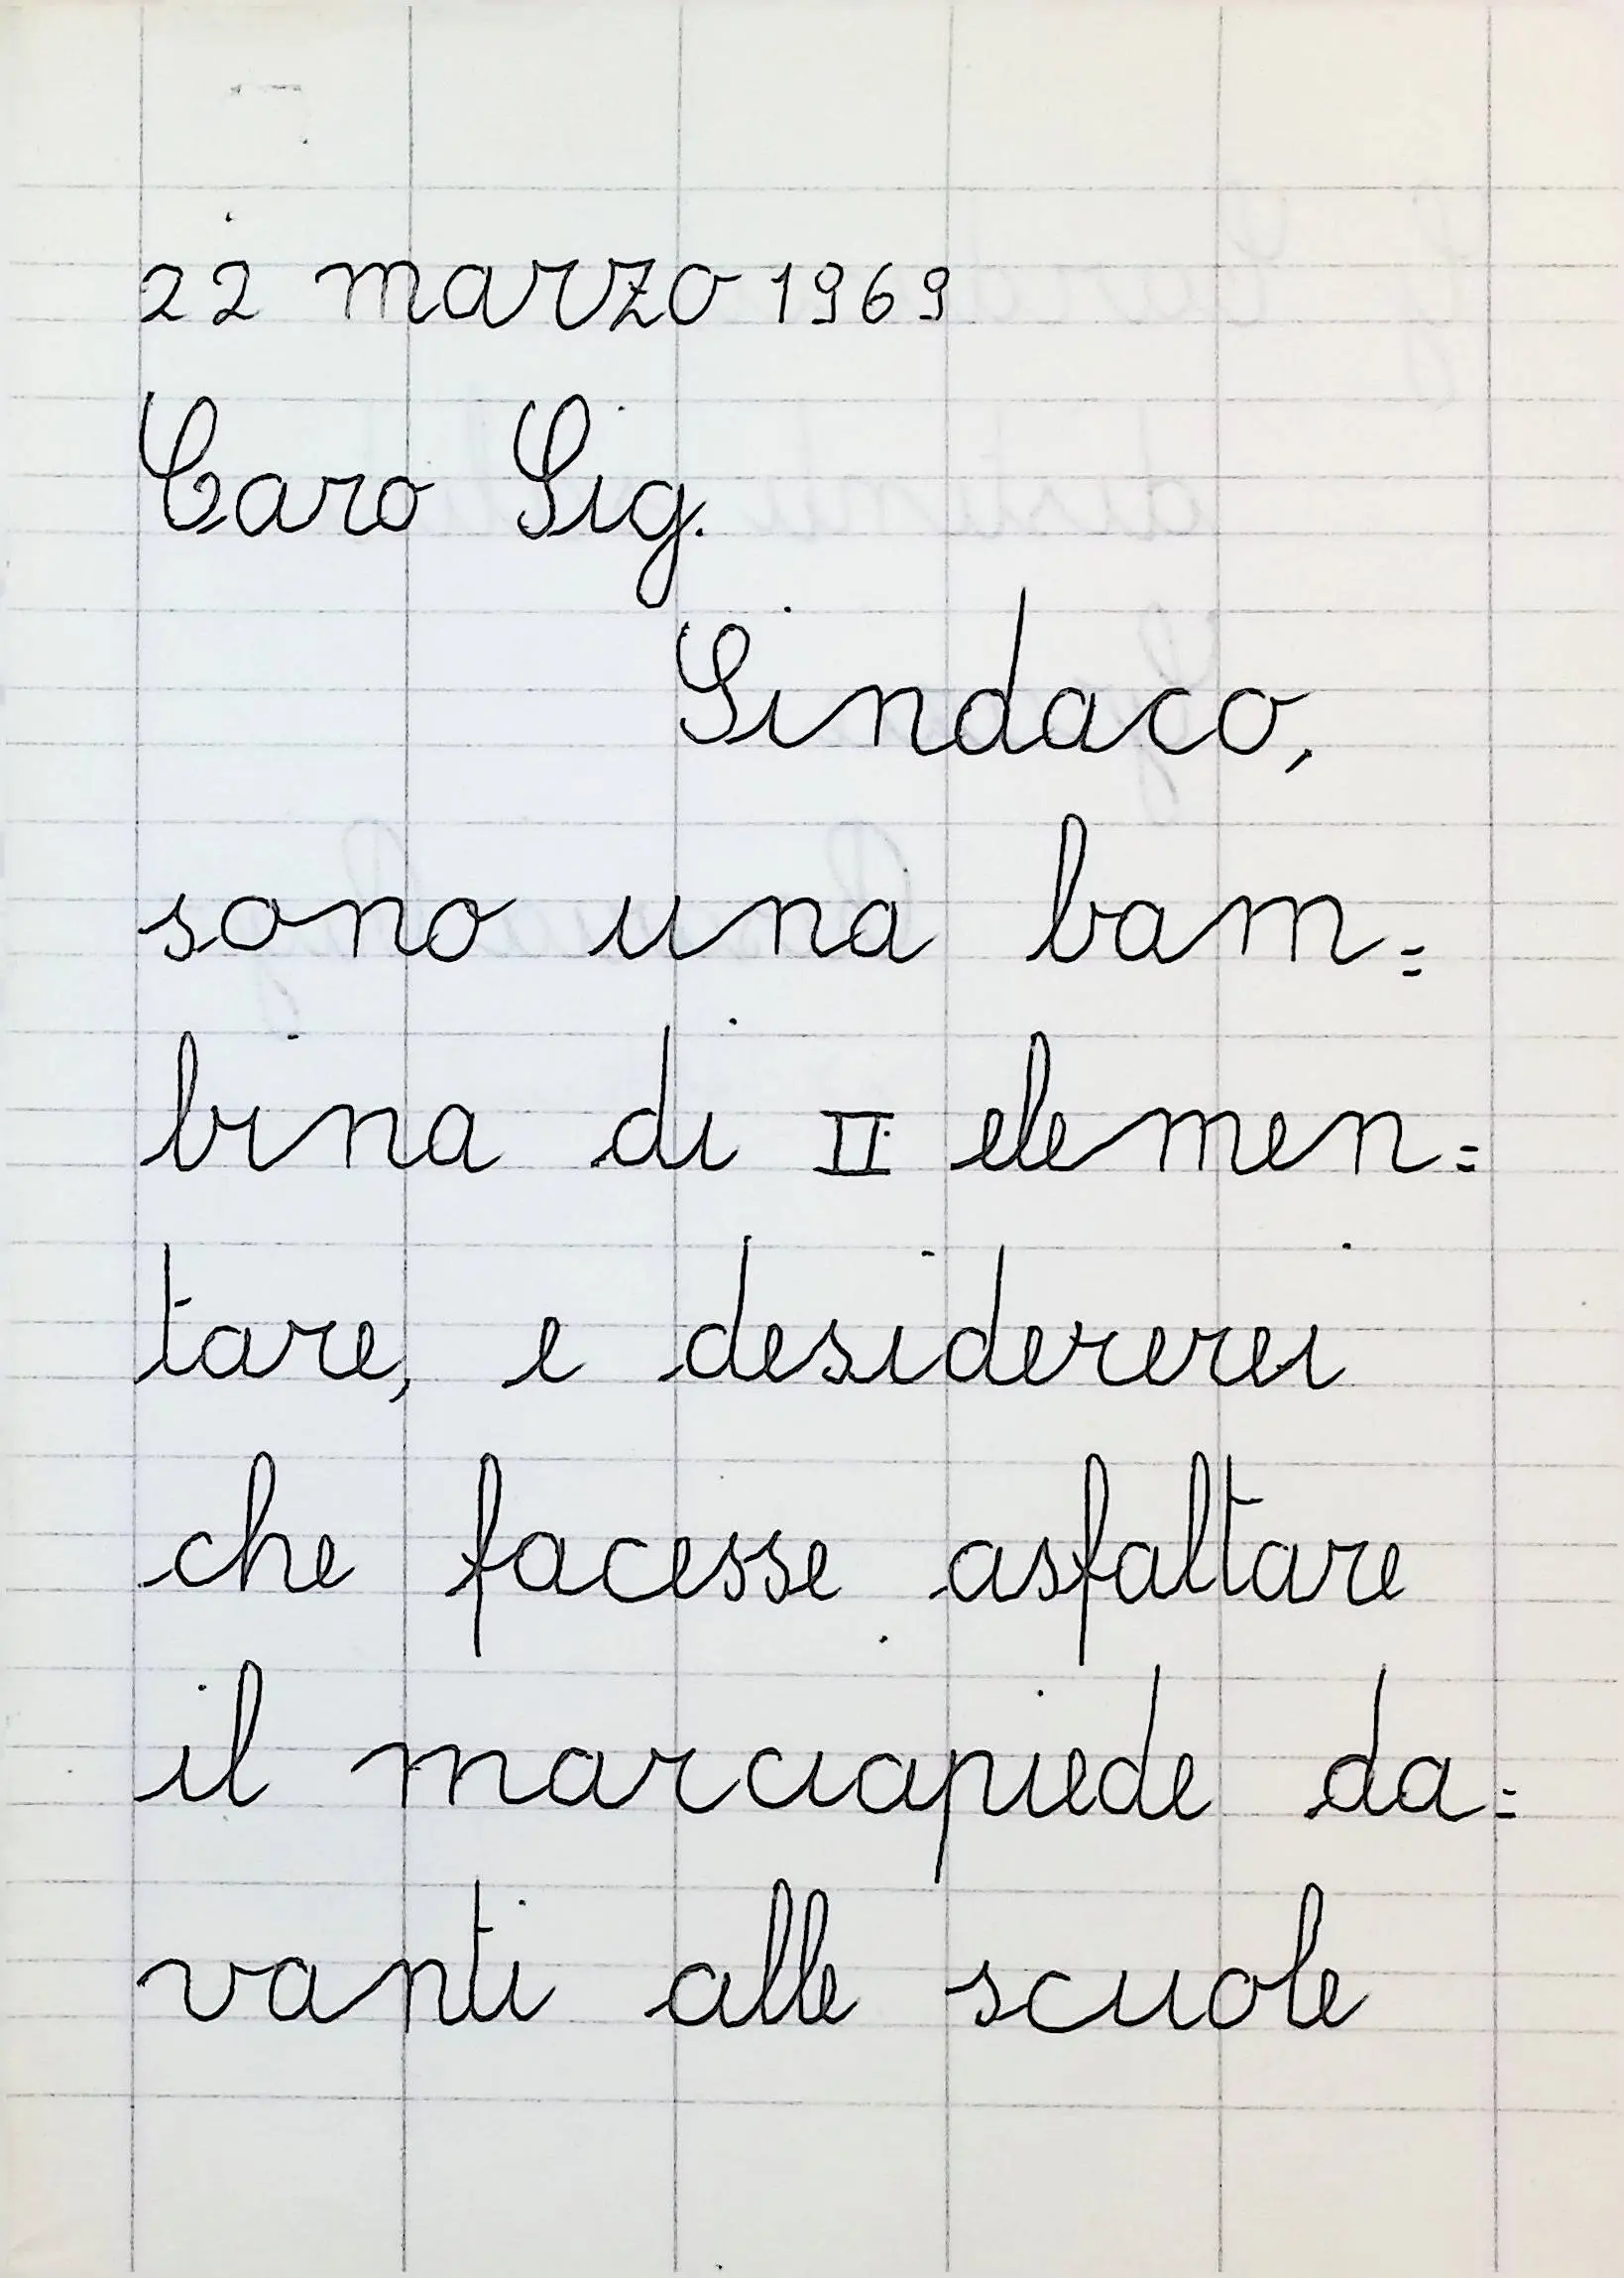 22 marzo 1969
Caro Sig.
Sindaco,
sono una bam=
bina di II elemen=
tare, e desidererei
che facesse asfaltare
il marciapiede da=
vanti alle scuole